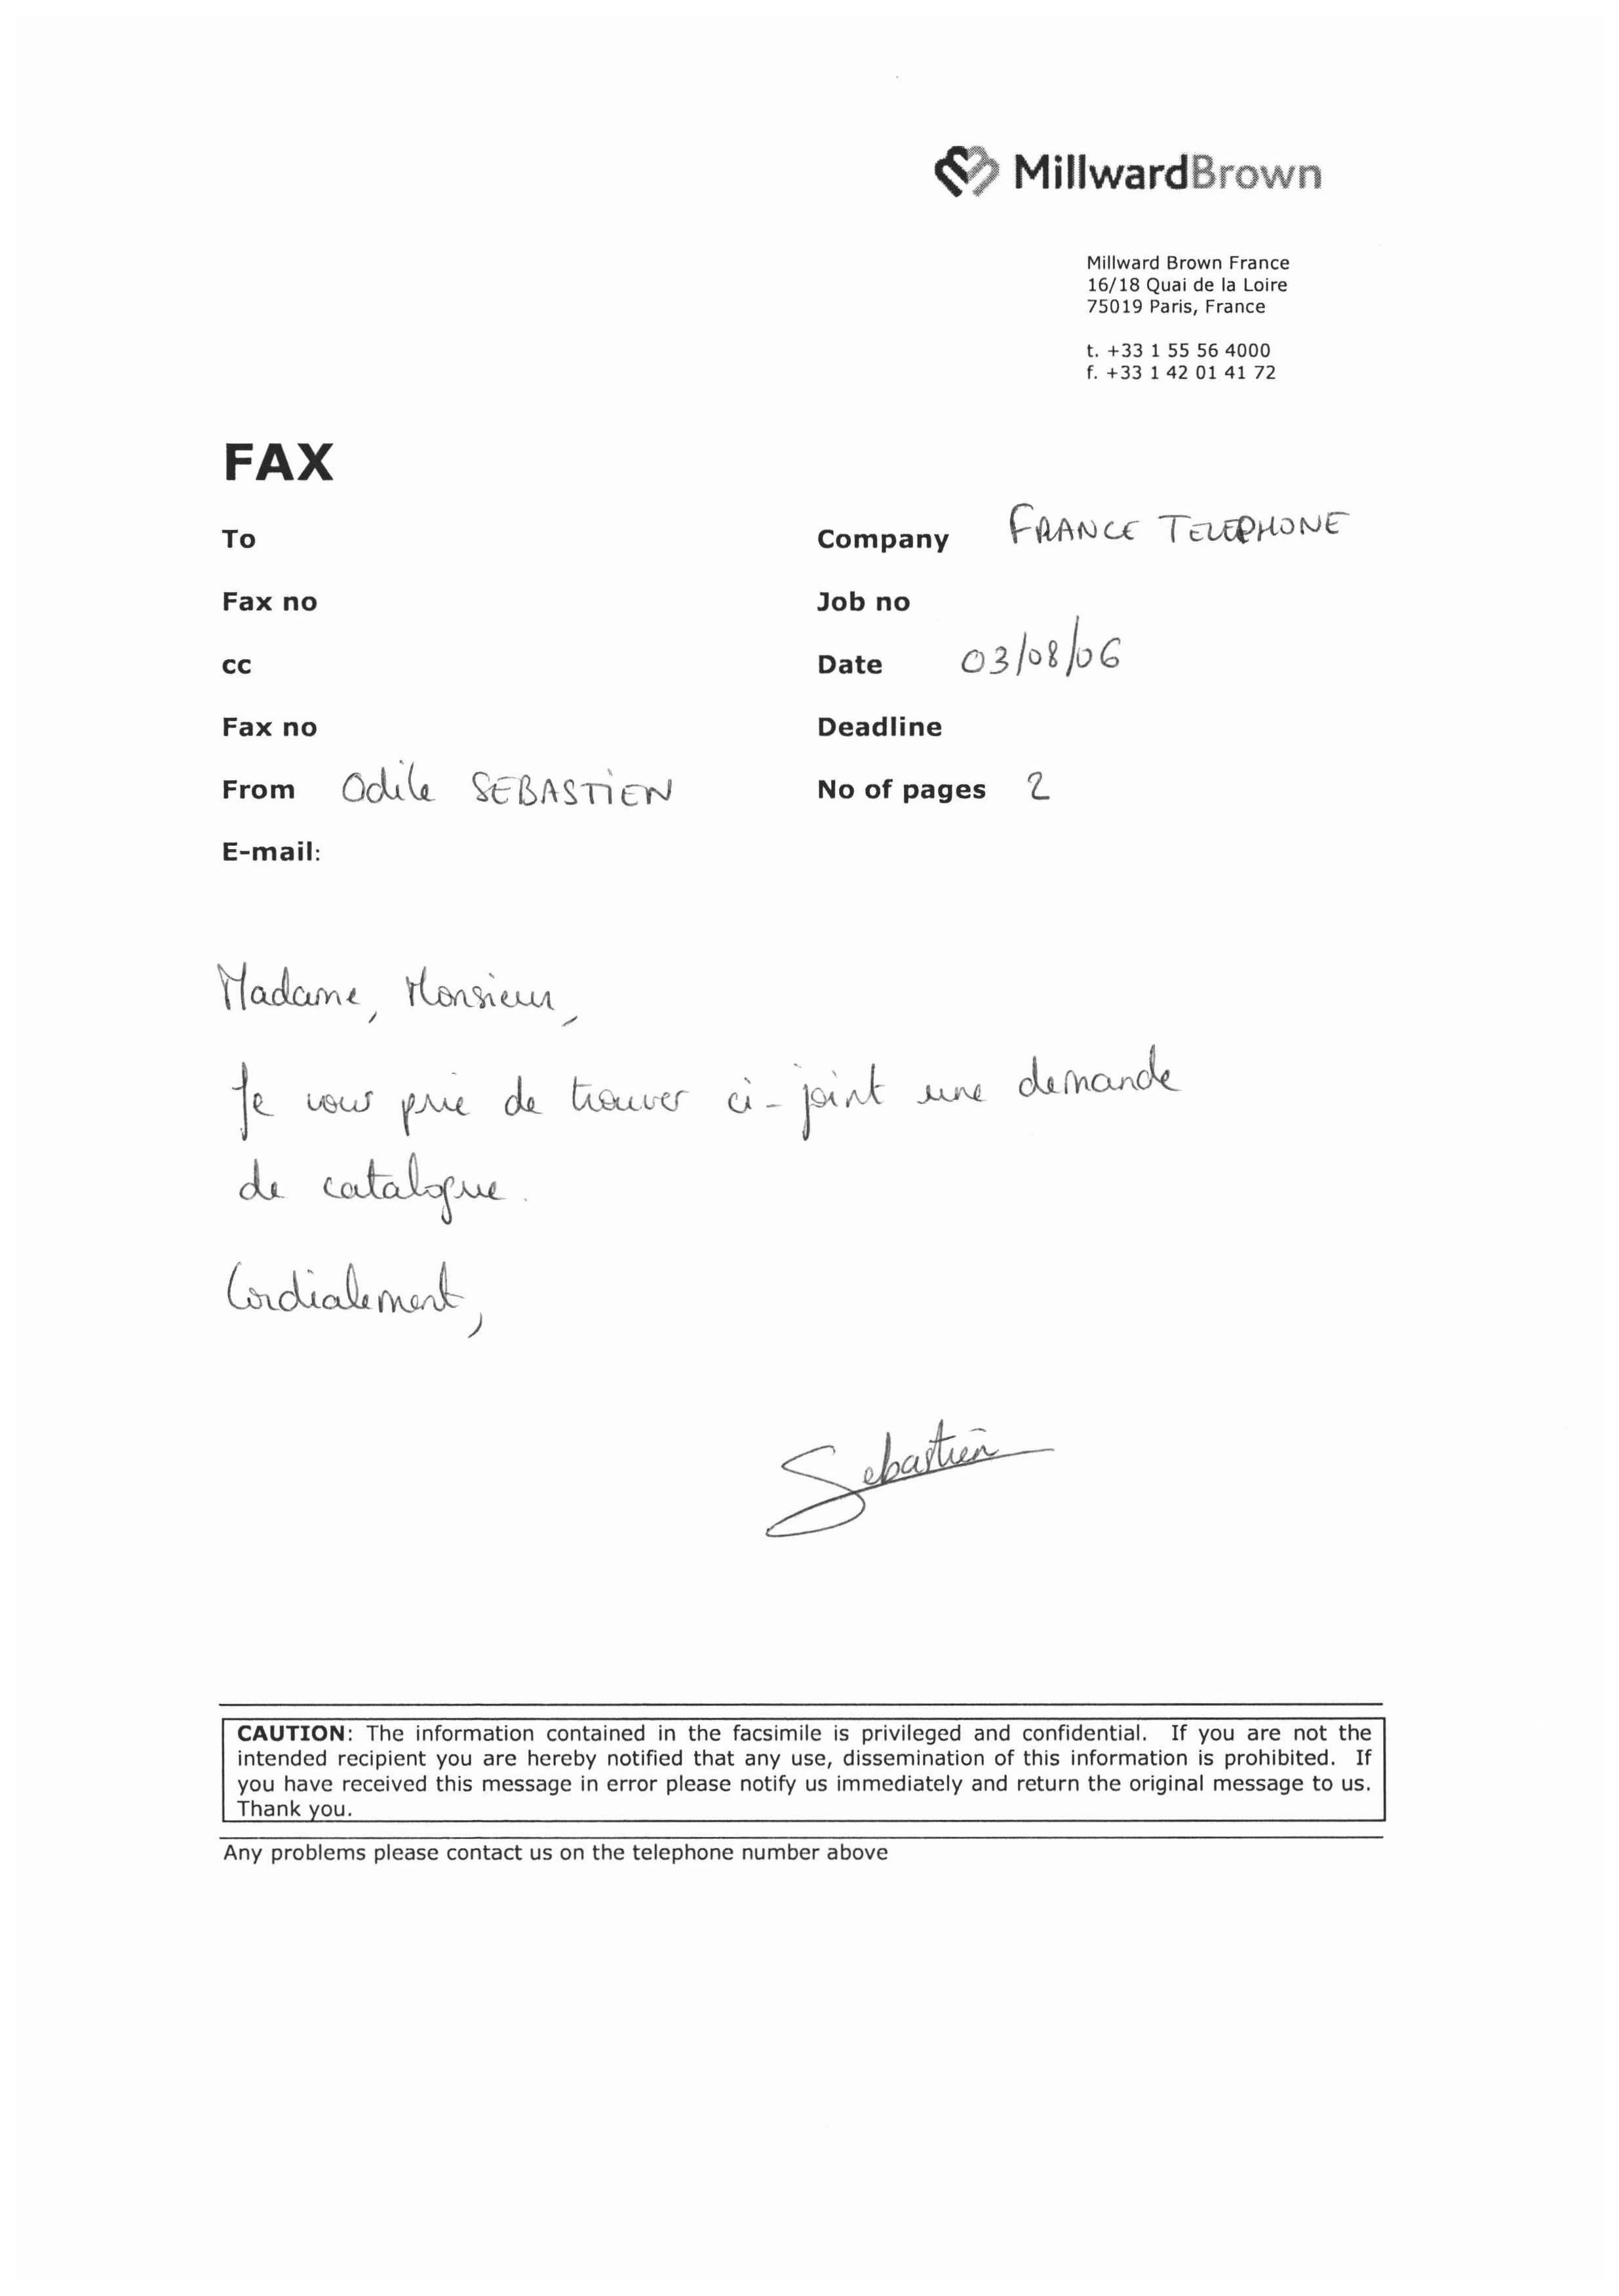 MillwardBrown
Millward Brown France
16/18 Quai de la Loire
75019 Paris, France
t. +33 1 55 56 4000
f. +33 1 42 01 41 72
FAX
To
Company FRANCE TELEPHONE
Fax no
Job no
cc
Date 03/08/06
Fax no
Deadline
From Odile SEBASTIEN
No of pages 2
E-mail:
Madame, Monsieur,
Je vous prie de trouver ci-joint une demande
de catalogue.
Cordialement,
Sebastien
CAUTION: The information contained in the facsimile is privileged and confidential. If you are not the
intended recipient you are hereby notified that any use, dissemination of this information is prohibited. If
you have received this message in error please notify us immediately and return the original message to us.
Thank you.
Any problems please contact us on the telephone number above